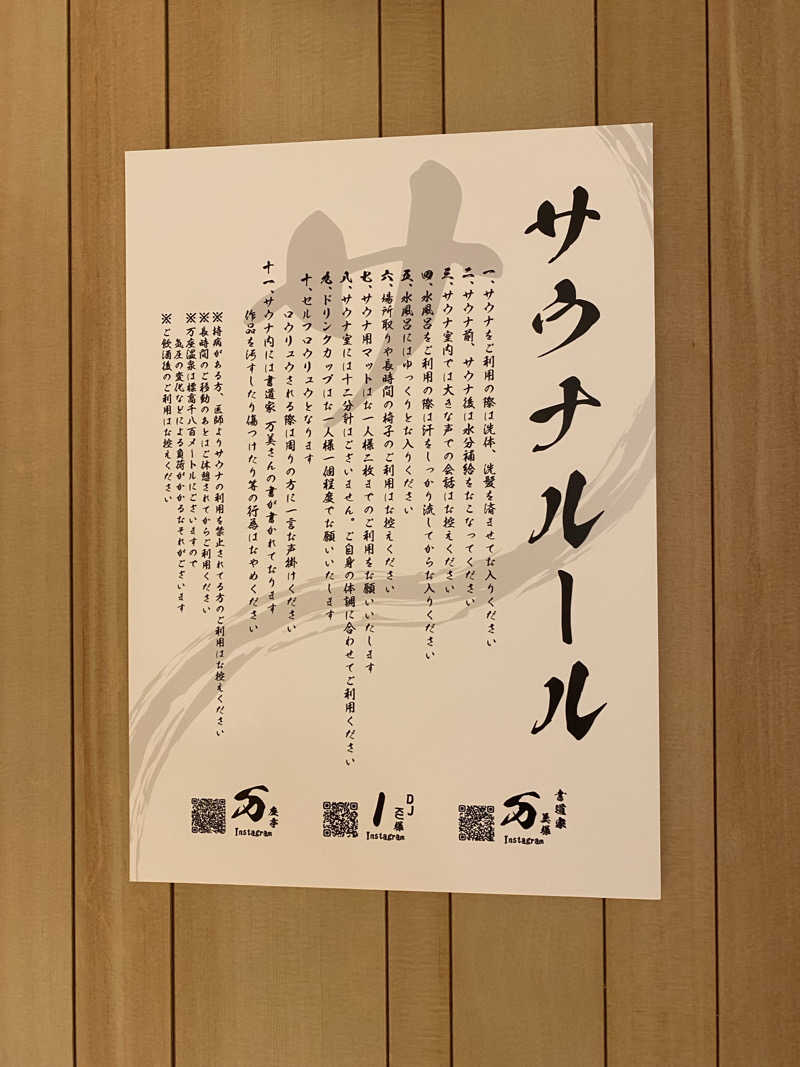 サウナルール
一、サウナをご利用の際は洗体、洗髪を済ませてお入りください
二、サウナ前、サウナ後は水分補給をおこなってください
三、サウナ室内では大きな声での会話はお控えください
四、水風呂をご利用の際は汗をしっかり流してからお入りください
五、水風呂にはゆっくりとお入りください
六、場所取りや長時間の椅子のご利用はお控えください
七、サウナ用マットはお一人様二枚までのご利用をお願いいたします
八、サウナ室には十二分計はございません。ご自身の体調に合わせてご利用ください
九、ドリンクカップはお一人様一個程度でお願いいたします
十、セルフロウリュウとなります
ロウリュウされる際は周りの方に一言お声掛けください
十一、サウナ内には書道家 万美さんの書が書かれております
作品を汚すしたり傷つけたり等の行為はおやめください
※持病がある方、医師よりサウナの利用を禁止されてる方のご利用はお控えください
※長時間のご移動のあとはご休憩されてからご利用ください
※万座温泉は標高千八百メートルにございますので
気圧の変化などによる負荷がかかるおそれがございます
※ご飲酒後のご利用はお控えください
書道家
万美様
Instagram
DJ
様
Instagram
万座亭
Instagram
サ